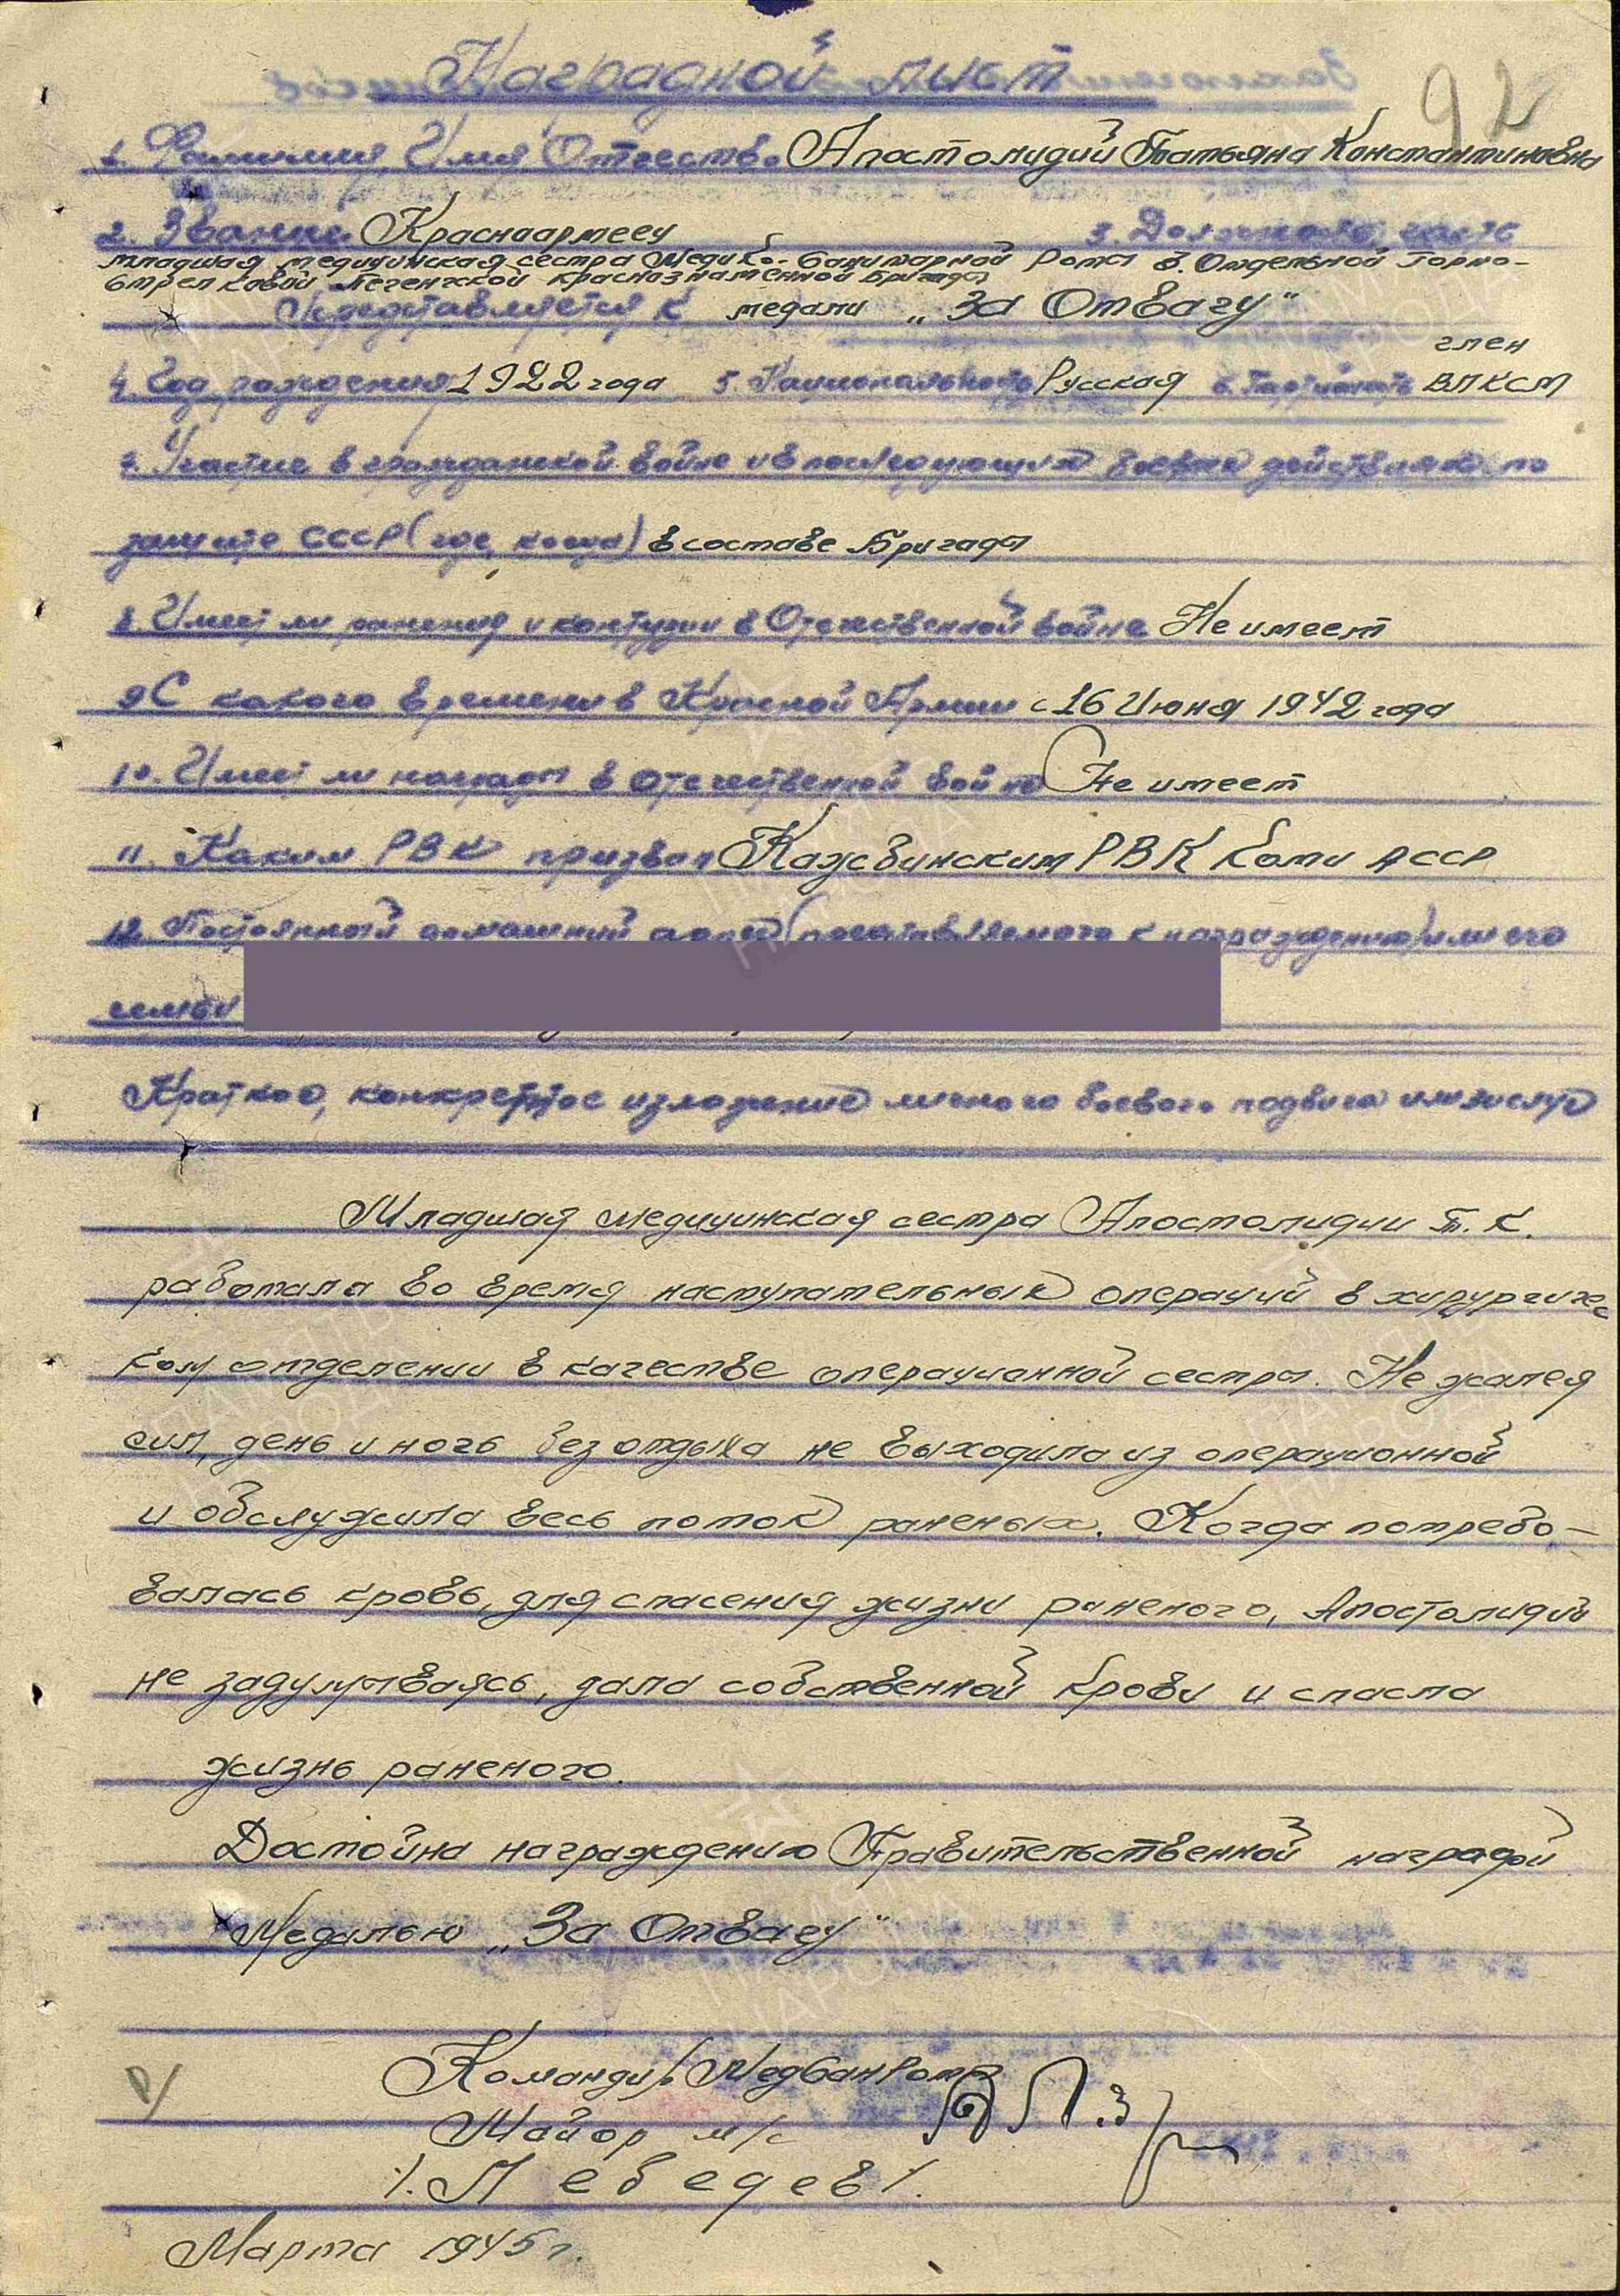 Наградной лист
92
1. Фамилия, Имя, Отчество Апостолидий Татьяна Константиновна
2. Звание Красноармеец 3. Должность, часть
младшая медицинская сестра Медико-Санитарной Роты 3. Отдельной Горно-
стрелковой Печенгской Краснознаменной Бригады
Представляется к медали „За Отвагу“
член
4. Год рождения 1922 года 5. Национальность Русская 6. Партийность ВЛКСМ
7. Участие в гражданской войне и в последующих боевых действиях по
защите СССР (где, когда) в составе Бригады
8. Имеет ли ранения и контузии в Отечественной войне Не имеет
9 С какого времени в Красной Армии с 16 Июня 1942 года
10. Имеет ли награды в Отечественной войне Не имеет
11. Каким РВК призван Кажвинским РВК Коми АССР
12. Постоянный домашний адрес (представляемого к награждению) или его
семьи
Краткое, конкретное изложение личного боевого подвига или заслуг
Младшая медицинская сестра Апостолидии Т. К.
работала во время наступательных операций в хирургичес
ком отделении в качестве операционной сестры. Не жалея
сил, день и ночь без отдыха не выходила из операционной
и обслужила весь поток раненых. Когда потребо-
валась кровь, для спасения жизни раненого, Апостолидий
не задумываясь, дала собственной крови и спасла
жизнь раненого.
Достойна награждению Правительственной наградой
Медалью „За Отвагу“
Командир МедСанРоты
Майор м/с
/. Лебедев /.
Марта 1945 г.